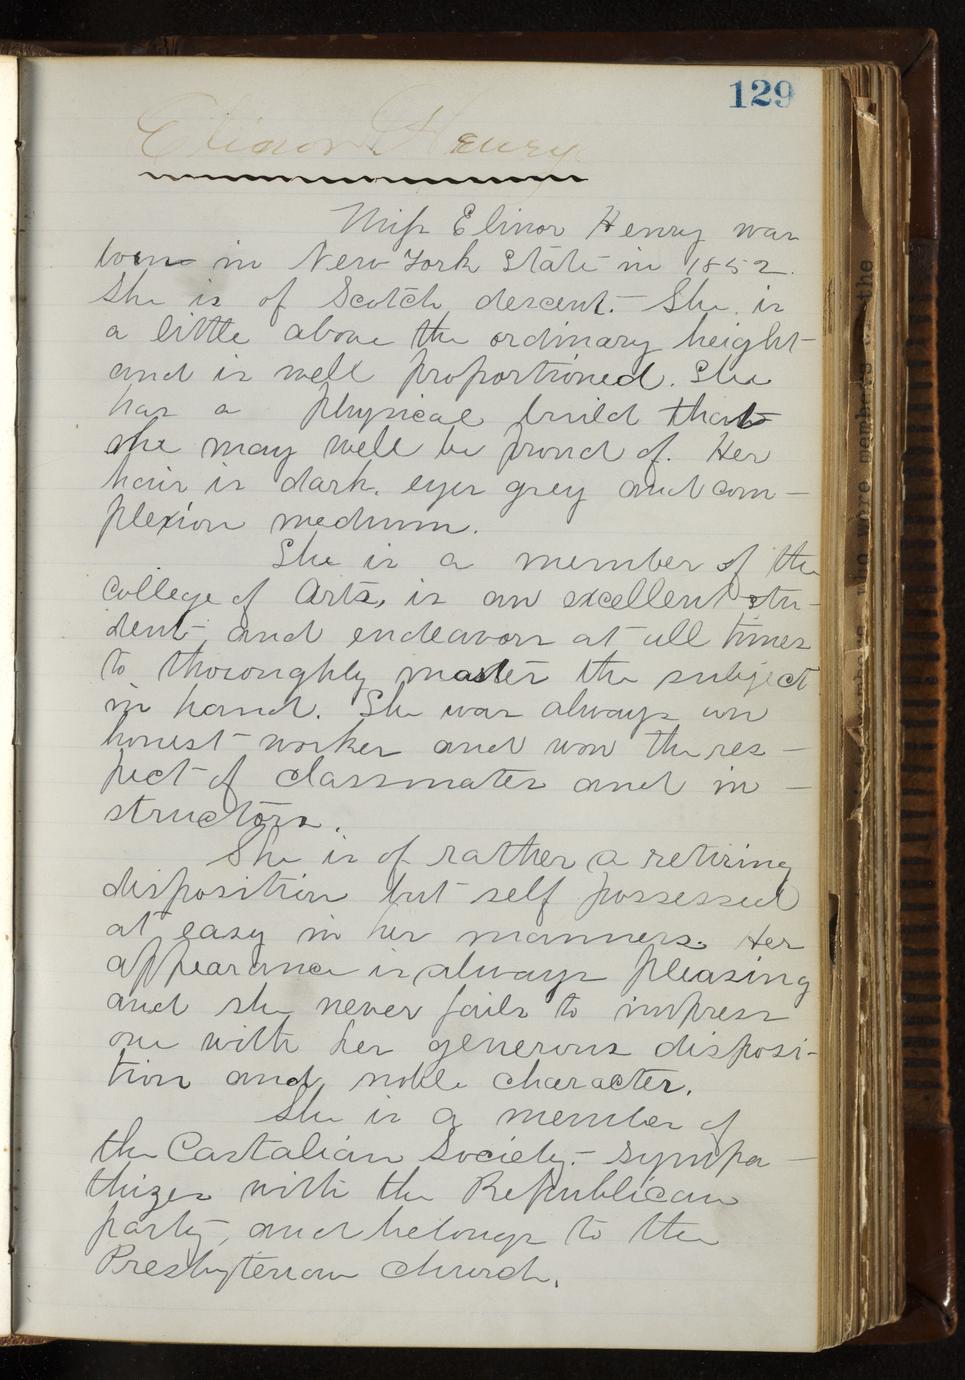 129
Elinor Henry
Miss Elinor Henry was
born in New York State in 1852.
She is of Scotch descent. – She is
a little above the ordinary height
and is well proportioned. She
has a physical build that
she may well be proud of. Her
hair is dark, eyes grey and com-
plexion medium.
She is a member of the
college of Arts, is an excellent stu-
dent and endeavors at all times
to thoroughly master the subject
in hand. She was always an
honest worker and won the res-
pect of classmates and in-
structors.
She is of rather a retiring
disposition but self possessed
at easy in her manners. Her
appearance is always pleasing
and she never fails to impress
one with her generous disposi-
tion and noble character.
She is a member of
the Castalian Society – sympa-
thizes with the Republican
party, and belongs to the
Presbyterian church.
who were members of the